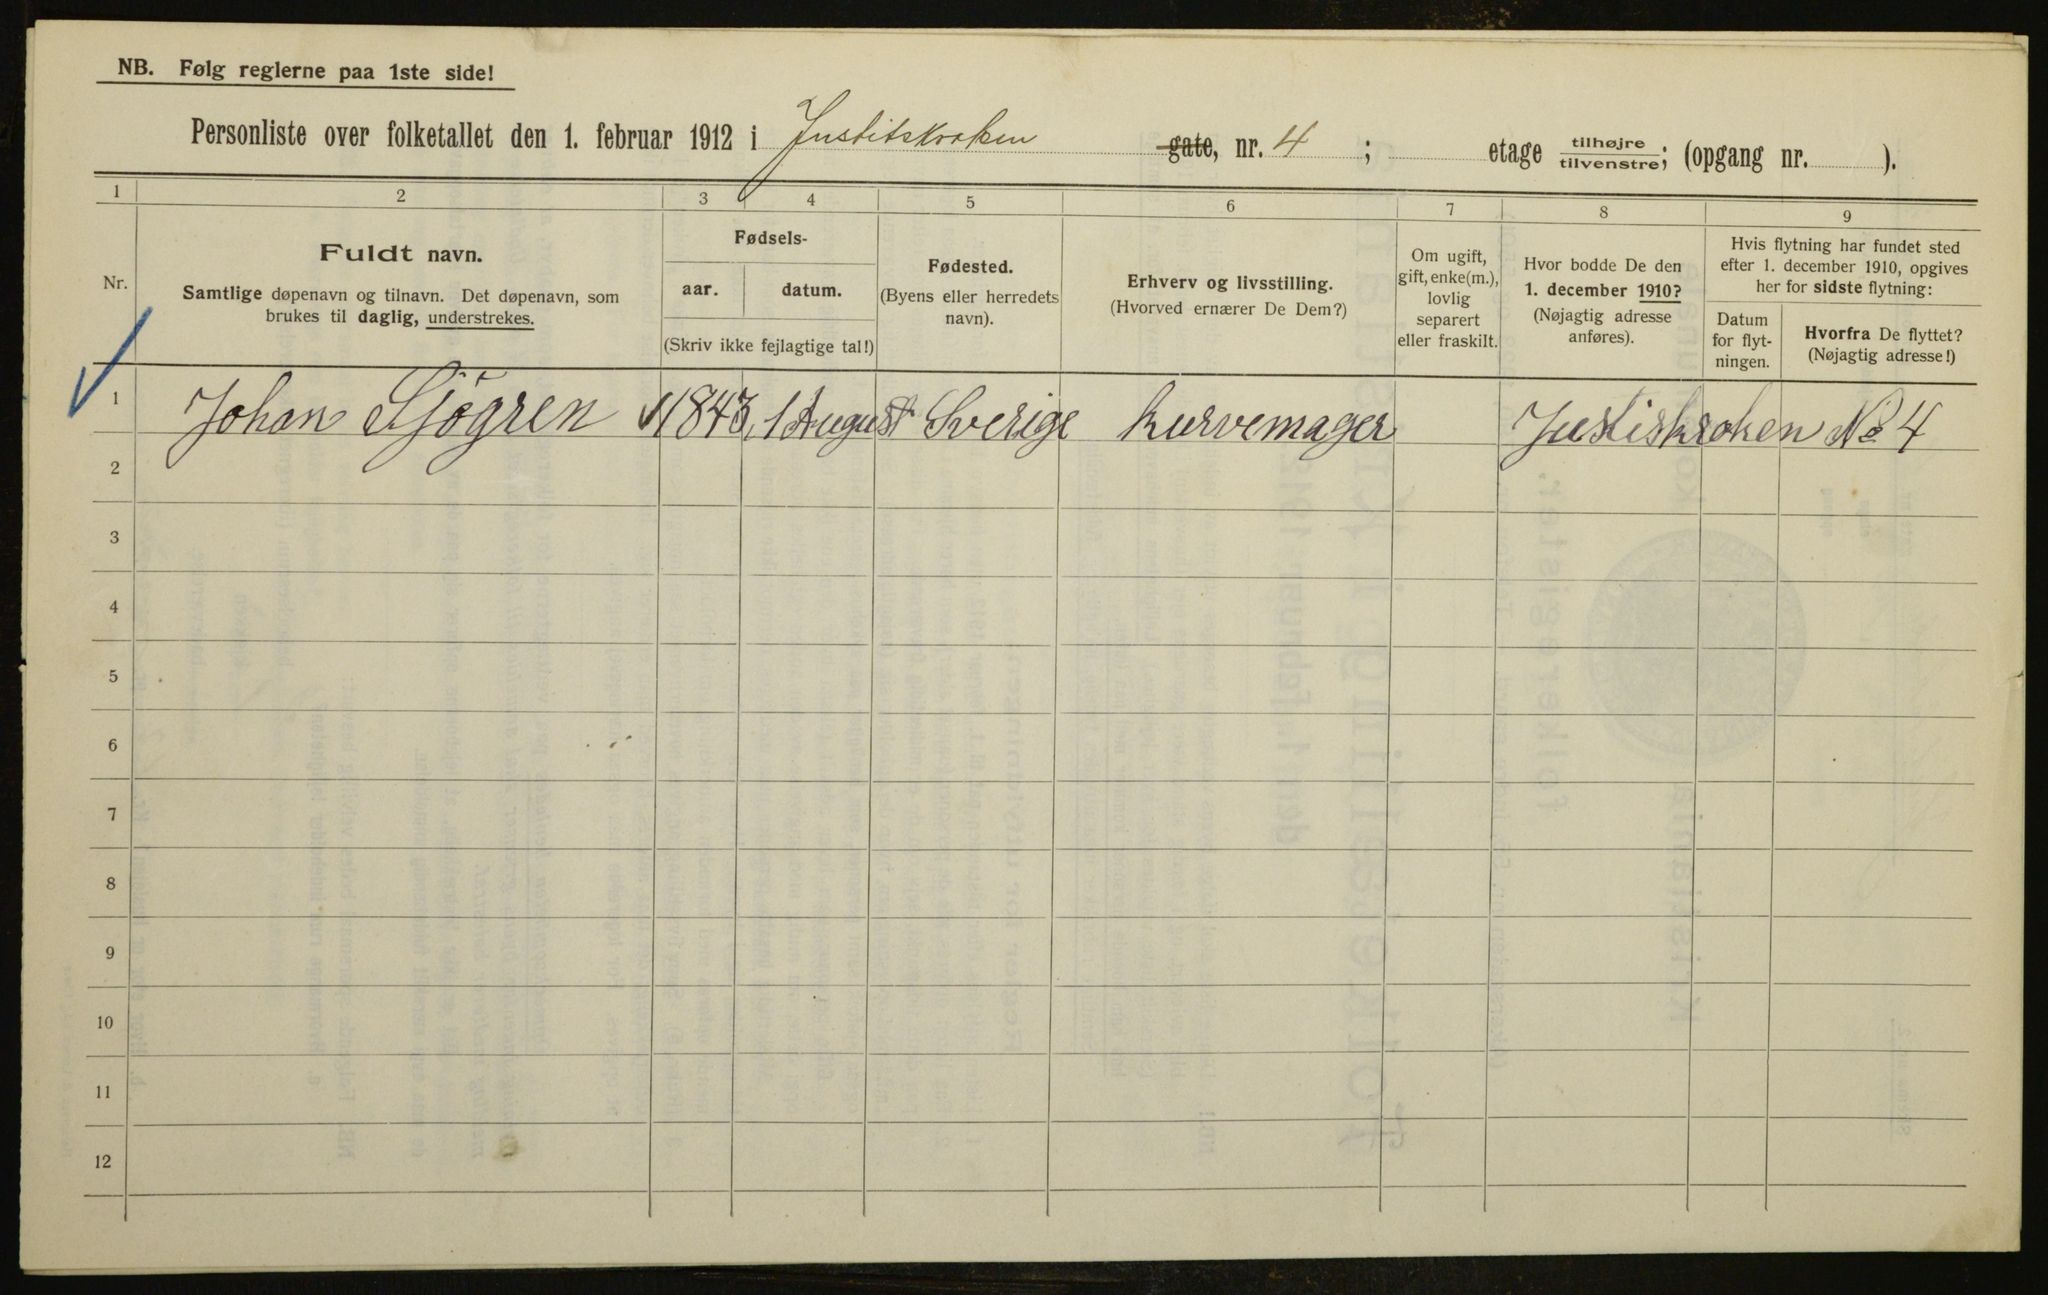 NB. Følg reglerne paa 1ste side!
Personliste over folketallet den 1. februar 1912 i Justitskroken gate, nr. 4 ; etage tilhøjre / tilvenstre; (opgang nr. ).
1 2 3 4 5 6 7 8 9
Nr.
Fuldt navn.
Samtlige døpenavn og tilnavn. Det døpenavn, som
brukes til daglig, understrekes.
Fødsels-
aar. datum.
(Skriv ikke fejlagtige tal!)
Fødested.
(Byens eller herredets
navn).
Erhverv og livsstilling.
(Hvorved ernærer De Dem?)
Om ugift,
gift, enke(m.),
lovlig
separert
eller fraskilt.
Hvor bodde De den
1. december 1910?
(Nøjagtig adresse
anføres).
Hvis flytning har fundet sted
efter 1. december 1910, opgives
her for sidste flytning:
Datum
for flyt-
ningen.
Hvorfra De flyttet?
(Nøjagtig adresse!)
1 Johan Sjögren 1843 1 August Sverige Kurvemager Justiskroken No 4
2
3
4
5
6
7
8
9
10
11
12